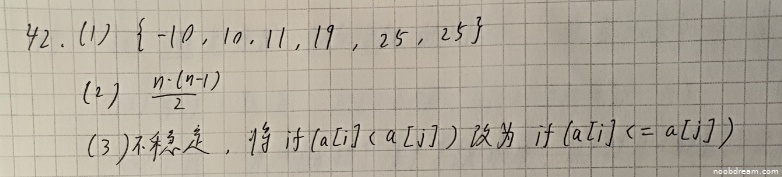 42. (1) {-10, 10, 11, 19, 25, 25}
(2) n·(n-1)/2
(3) 不稳定, 将 if(a[i]<a[j]) 改为 if(a[i]<=a[j])
noobdream.com